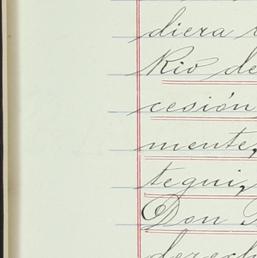 diera
Rio de
cesión
mente,
tegui,
Don
derech